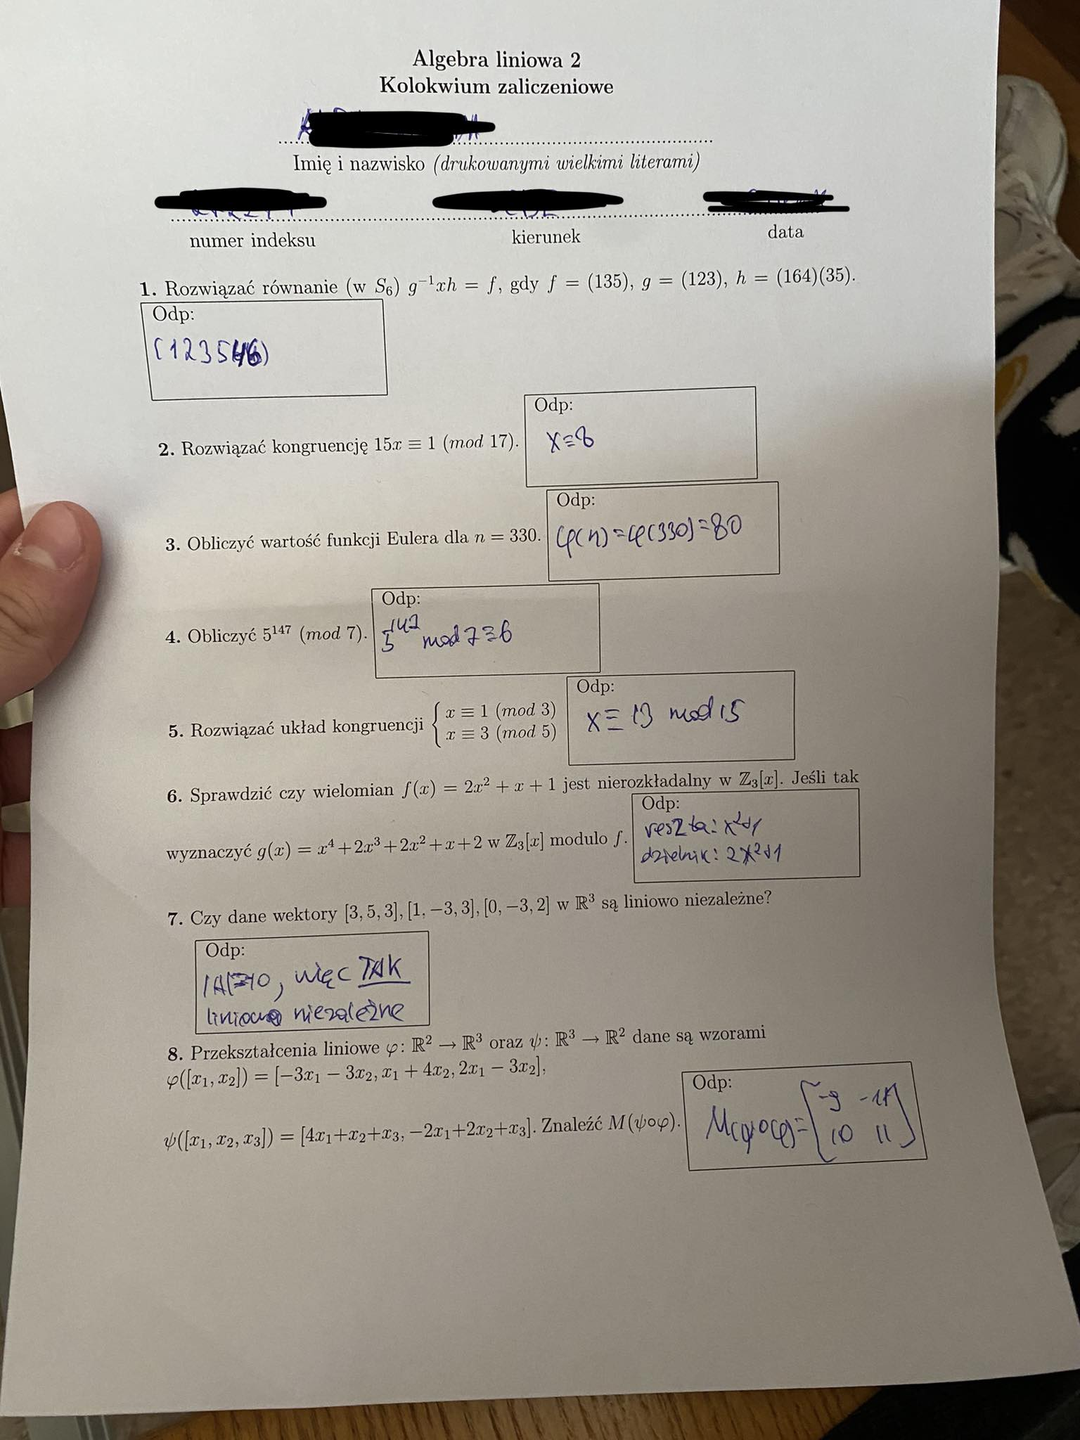 Algebra liniowa 2
Kolokwium zaliczeniowe
Imię i nazwisko (drukowanymi wielkimi literami)
numer indeksu kierunek data
1. Rozwiązać równanie (w S₆) g⁻¹xh = f, gdy f = (135), g = (123), h = (164)(35).
Odp:
(123546)
2. Rozwiązać kongruencję 15x ≡ 1 (mod 17).
Odp:
x=8
3. Obliczyć wartość funkcji Eulera dla n = 330.
Odp:
φ(n)=φ(330)=80
4. Obliczyć 5¹⁴⁷ (mod 7).
Odp:
5¹⁴⁷ mod 7≡6
5. Rozwiązać układ kongruencji { x ≡ 1 (mod 3)
x ≡ 3 (mod 5)
Odp:
x ≡ 13 mod 15
6. Sprawdzić czy wielomian f(x) = 2x² + x + 1 jest nierozkładalny w ℤ₃[x]. Jeśli tak
wyznaczyć g(x) = x⁴+2x³+2x²+x+2 w ℤ₃[x] modulo f.
Odp:
reszta: x²+1
dzielnik: 2x²+1
7. Czy dane wektory [3, 5, 3], [1, −3, 3], [0, −3, 2] w ℝ³ są liniowo niezależne?
Odp:
|A|≠0, więc TAK
liniowo niezależne
8. Przekształcenia liniowe φ: ℝ² → ℝ³ oraz ψ: ℝ³ → ℝ² dane są wzorami
φ([x₁, x₂]) = [−3x₁ − 3x₂, x₁ + 4x₂, 2x₁ − 3x₂],
ψ([x₁, x₂, x₃]) = [4x₁+x₂+x₃, −2x₁+2x₂+x₃]. Znaleźć M(ψ∘φ).
Odp:
M(ψ∘φ)= [-9 -11
10 11]